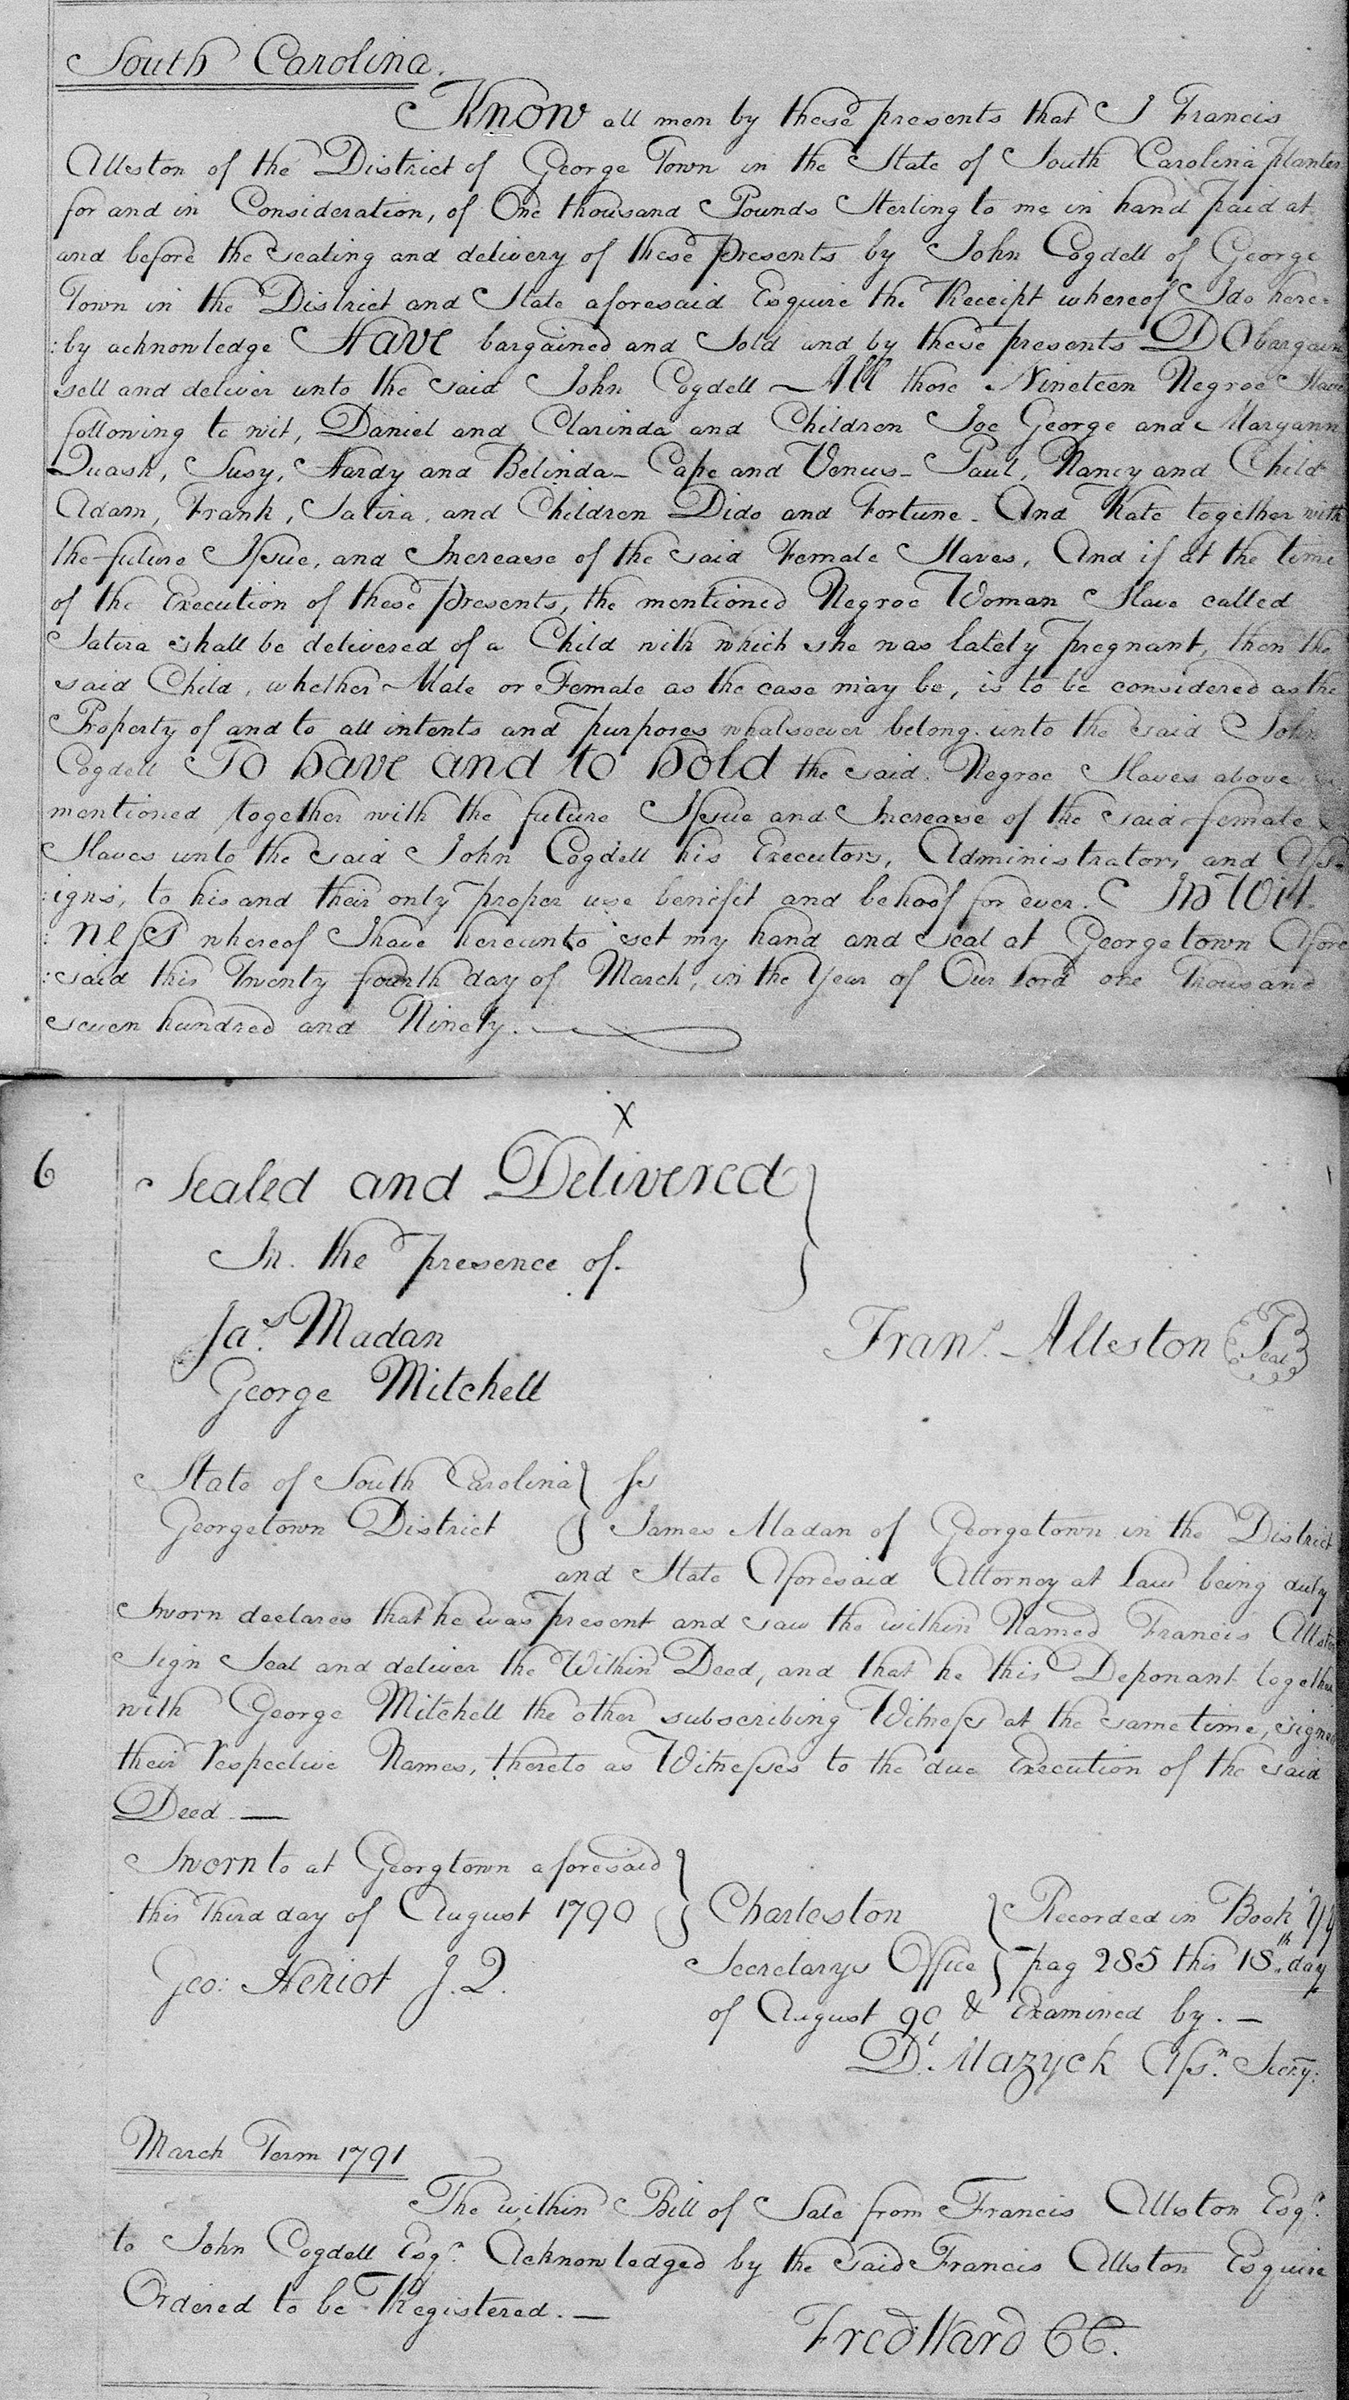 South Carolina.
Know all men by these presents that I Francis
Allston of the District of George Town in the State of South Carolina planter
for and in Consideration, of One thousand Pounds Sterling to me in hand paid at
and before the sealing and delivery of these presents by John Cogdell of George
Town in the District and State aforesaid Esquire the Receipt whereof I do here=
:by acknowledge Have bargained and Sold and by these presents DO bargain
sell and deliver unto the said John Cogdell All those Nineteen Negroe Slaves
following to wit, Daniel and Clarinda and Children Joe George and Maryann
Quash, Susy, Hardy and Belinda_ Cape and Venus_ Paul, Nancy and Child
Adam, Frank, Satira, and Children Dido and Fortune_ And Kate together with
the future Issue, and Increase of the said Female Slaves, And if at the time
of the Execution of these Presents, the mentioned Negroe Woman Slave called
Satira shall be delivered of a Child with which she was lately pregnant, then the
said Child, whether Male or Female as the case may be, is to be considered as the
Property of and to all intents and purposes whatsoever belong unto the said John
Cogdell To have and to hold the said Negroe Slaves above
mentioned together with the future Issue and Increase of the said female
Slaves unto the said John Cogdell his Executors, Administrators and Ass=
:igns, to his and their only proper use benefit and behoof for ever. In Wit.
:ness whereof I have hereunto set my hand and seal at Georgetown Afore
:said this Twenty fourth day of March, in the Year of Our Lord one thousand
seven hundred and Ninety.
X
6
Sealed and Delivered
In the Presence of.
Jas. Madan
George Mitchell
Frans. Allston Seal
State of South Carolina } ss
Georgetown District } James Madan of Georgetown in the District
and State Aforesaid Attorney at Law being duly
Sworn declares that he was present and saw the within Named Francis Allston
Sign Seal and deliver the Within Deed, and that he this Deponant together
with George Mitchell the other subscribing Witness at the same time, signed
their respective Names, thereto as Witnesses to the due Execution of the said
Deed —
Sworn to at Georgtown aforesaid
this Third day of August 1790
Geo: Heriot J.Q.
Charleston } Recorded in Book Yy
Secretarys Office } pag 285 this 18th. day
of August 90 & Examined by. —
Dl. Mazyck Assn. Secry.
March Term 1791
The within Bill of Sale from Francis Allston Esqr.
to John Cogdell Esqr. Acknowledged by the said Francis Allston Esquire
Ordered to be Registered. —
Fred Ward CC.